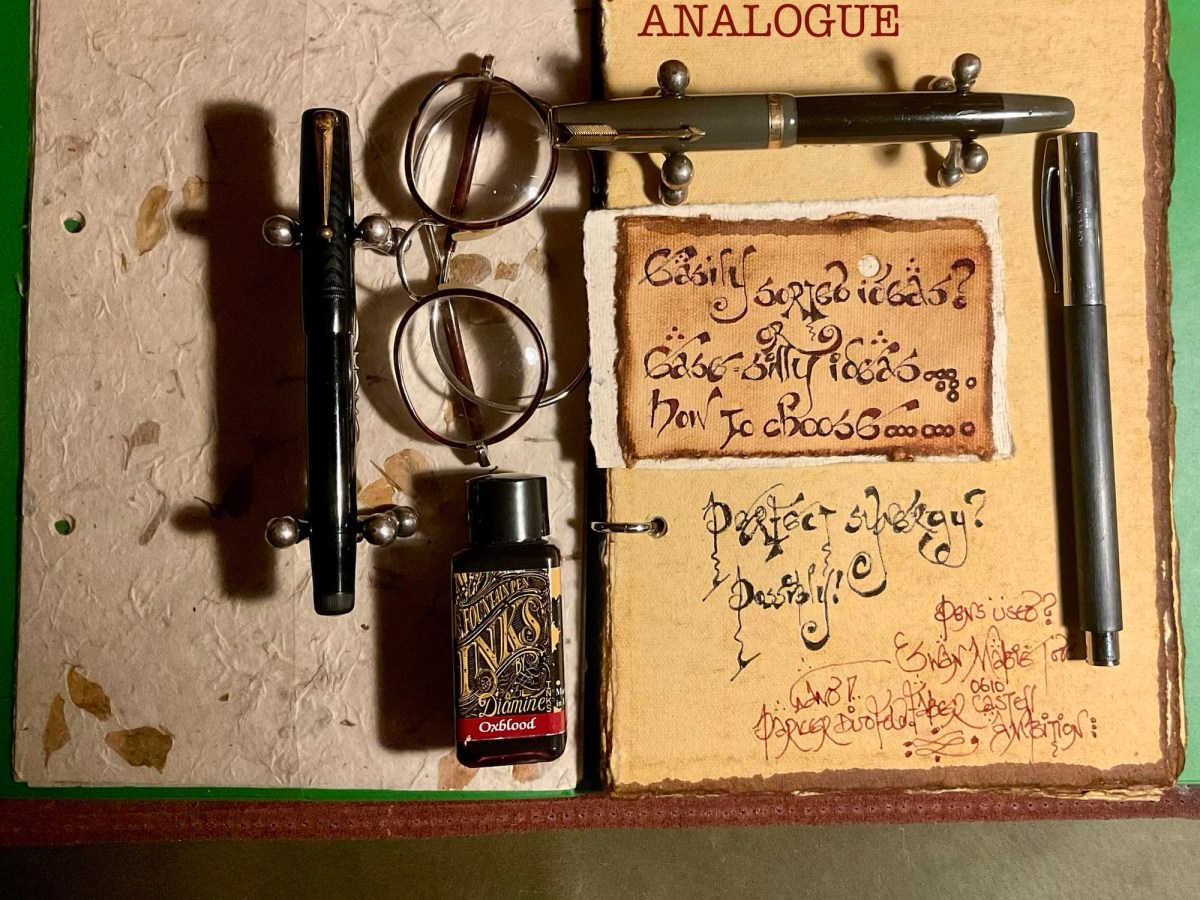 ANALOGUE
Easily sorted ideas?
or
Ease-silly ideas....
how to choose......
perfect synergy?
possibly!
pens used??
Swan Mabie Tod
0610
and
Parker Duofold Faber Castell
Ambition:
FOUNTAIN PEN
INKS
Diamine
INKS
Oxblood